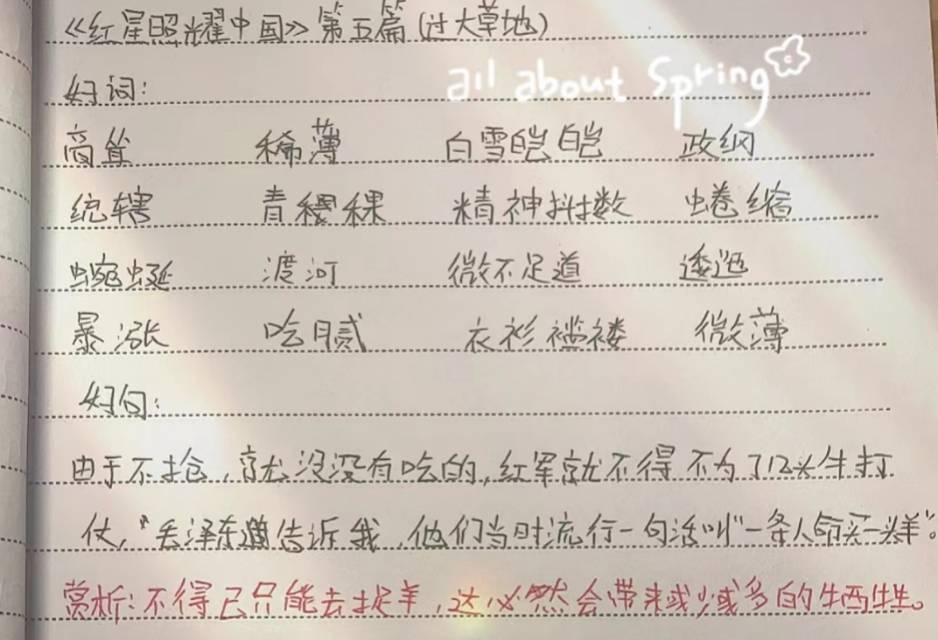 《红星照耀中国》第五篇(过大草地)
all about Spring
好词:
高耸 稀薄 白雪皑皑 政纲
统辖 青稞 精神抖擞 蜷缩
蜿蜒 渡河 微不足道 逶迤
暴涨 吃腻 衣衫褴褛 微薄
好句:
由于不抢,就没没有吃的,红军就不得不为了12头牛打
仗,“毛泽东告诉我,他们当时流行一句话叫“一条人命买一头羊”。
赏析:不得已只能去捉羊,这必然会带来或少或多的牺牲。